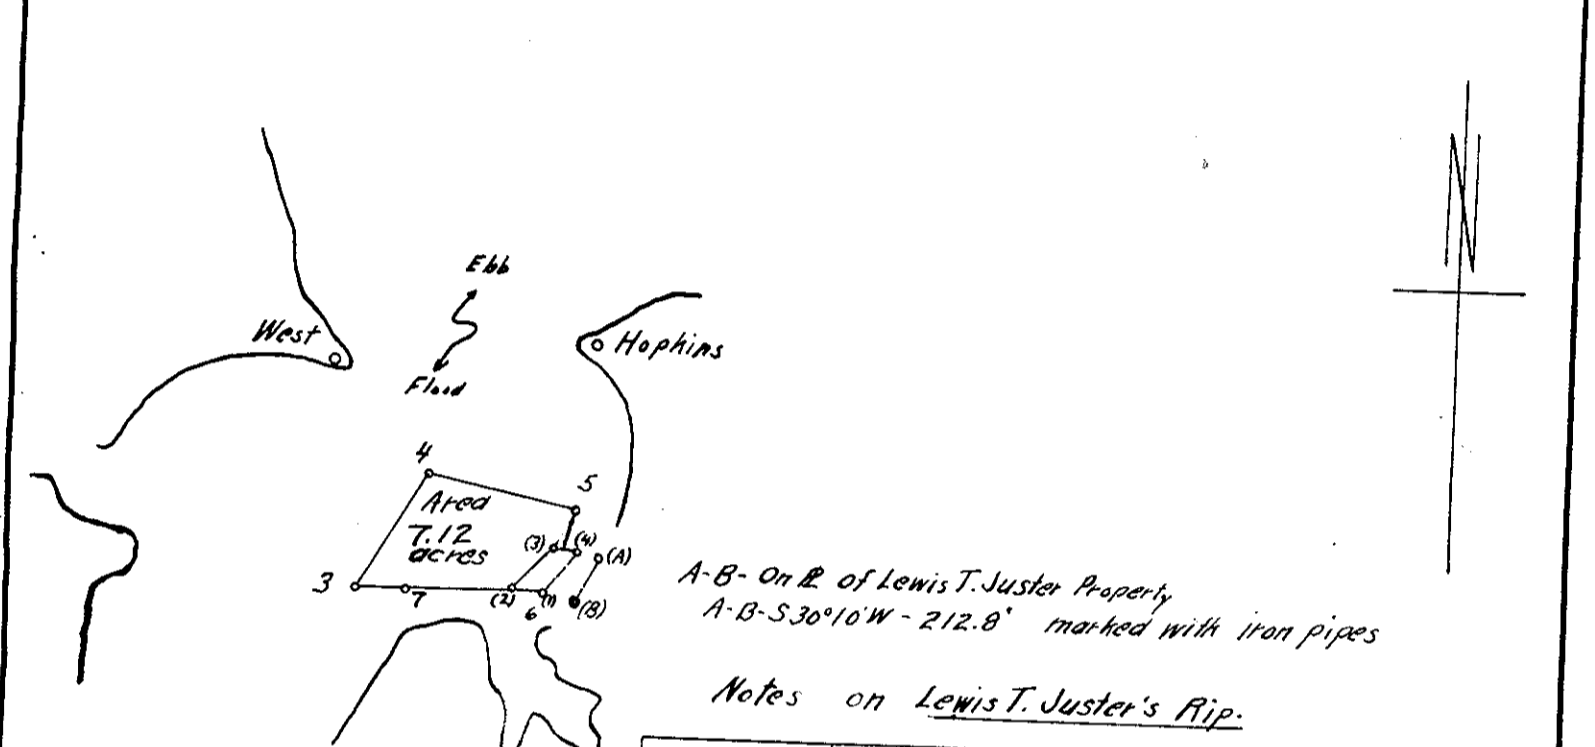 N
Ebb
West
Hopkins
Flood
4
5
Area
7.12
acres
(3)
(4)
(A)
3
7
(2)
(1)
6
(B)
A-B- On PL of Lewis T. Juster Property
A-B-S30°10'W - 212.8' marked with iron pipes
Notes on Lewis T. Juster's Rip.